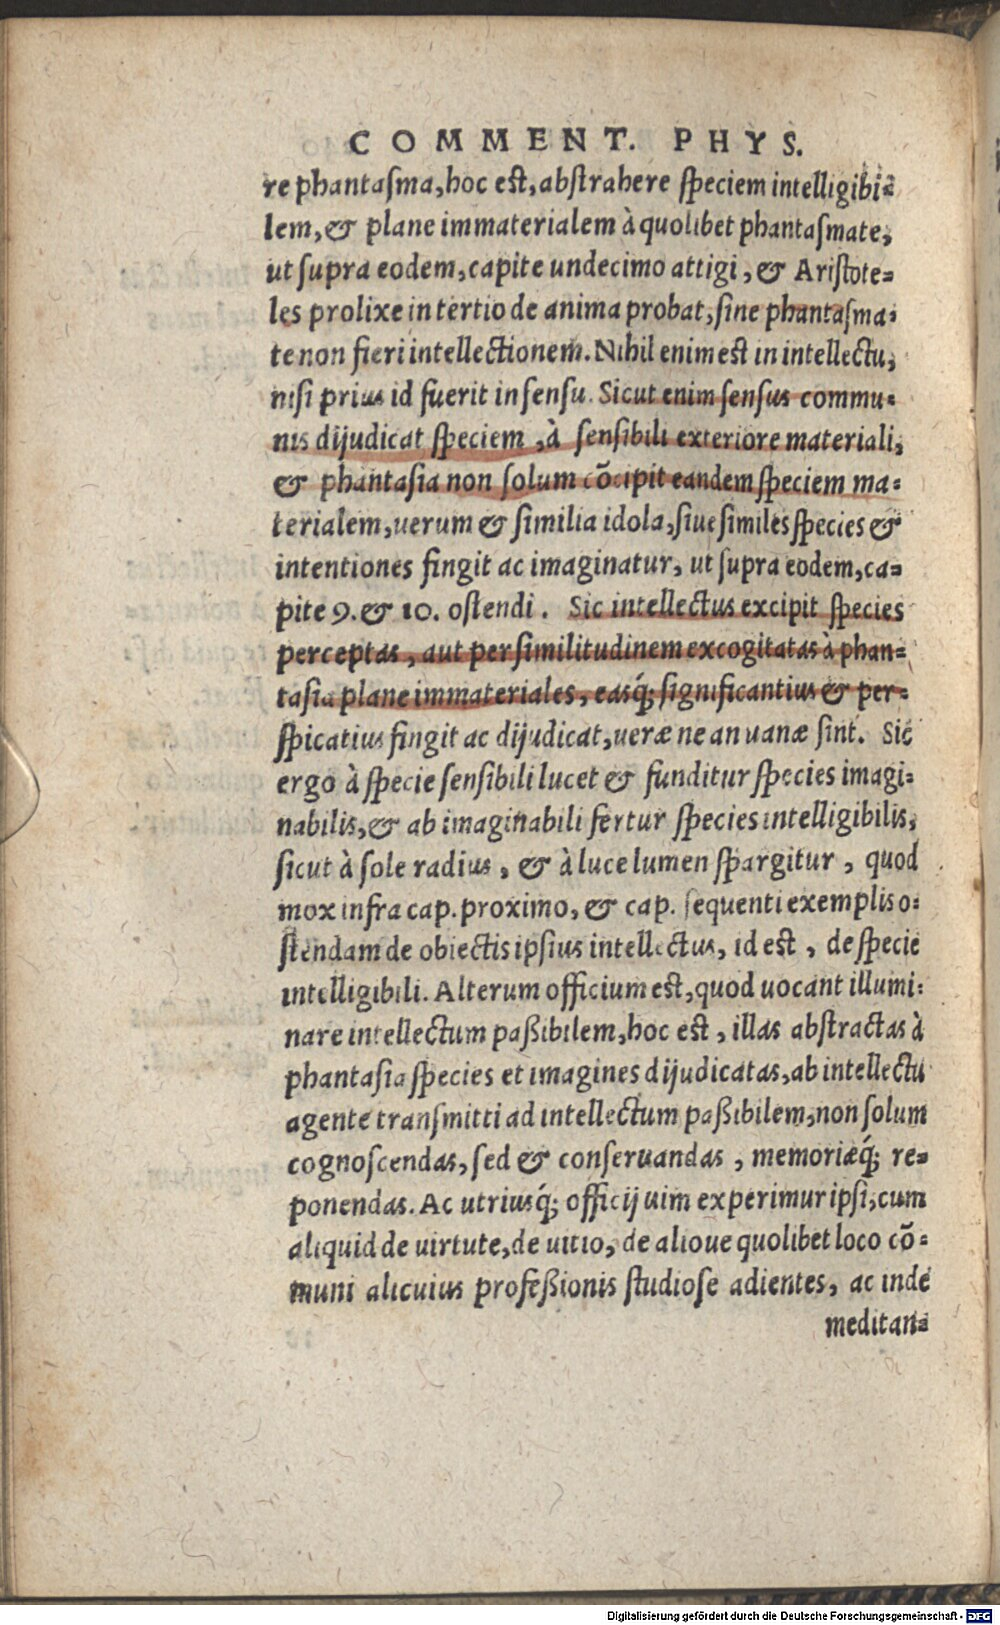 COMMENT. PHYS.
re phantasma, hoc est, abstrahere speciem intelligibi-
lem, & plane immaterialem à quolibet phantasmate,
ut supra eodem, capite undecimo attigi, & Aristote-
les prolixe in tertio de anima probat, sine phantasma-
te non fieri intellectionem. Nihil enim est in intellectu,
nisi prius id fuerit in sensu. Sicut enim sensus commu-
nis dijudicat speciem, à sensibili exteriore materiali,
& phantasia non solum cōcipit eandem speciem ma-
terialem, uerum & similia idola, siue similes species &
intentiones fingit ac imaginatur, ut supra eodem, ca-
pite 9. & 10. ostendi. Sic intellectus excipit species
perceptas, aut per similitudinem excogitatas à phan-
tasia plane immateriales, easq́; significantius & per-
spicatius fingit ac dijudicat, ueræ ne an uanæ sint. Sic
ergo à specie sensibili lucet & funditur species imagi-
nabilis, & ab imaginabili fertur species intelligibilis,
sicut à sole radius, & à luce lumen spargitur, quod
mox infra cap. proximo, & cap. sequenti exemplis o-
stendam de obiectis ipsius intellectus, id est, de specie
intelligibili. Alterum officium est, quod uocant illumi-
nare intellectum paßibilem, hoc est, illas abstractas à
phantasia species et imagines dijudicatas, ab intellectu
agente transmitti ad intellectum paßibilem, non solum
cognoscendas, sed & conseruandas, memoriæq́; re-
ponendas. Ac utriusq́; officij uim experimur ipsi, cum
aliquid de uirtute, de uitio, de alioue quolibet loco cō-
muni alicuius profeßionis studiose adientes, ac inde
meditan-
Digitalisierung gefördert durch die Deutsche Forschungsgemeinschaft - DFG